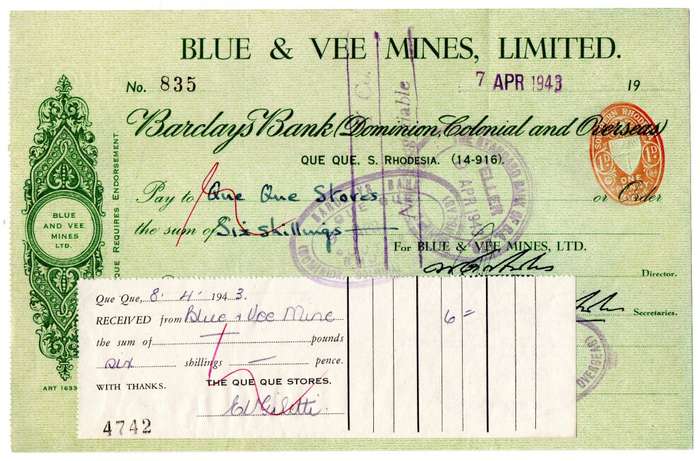 BLUE & VEE MINES, LIMITED.
No. 835
7 APR 1943 19
Barclays Bank (Dominion, Colonial and Overseas)
QUE QUE, S. RHODESIA. (14-916).
SOUTHERN RHODESIA
1D 1D
ONE
Pay to Que Que Stores or Order
the sum of Six shillings
For BLUE & VEE MINES, LTD.
Director.
Secretaries.
BLUE
AND VEE
MINES
LTD.
QUE REQUIRES ENDORSEMENT
ART 1633
BARCLAYS BANK
THE STANDARD BANK OF
TELLER
APR 1943
OVERSEAS
Que Que, 8. 4. 1943.
RECEIVED from Blue & Vee Mine
the sum of pounds
six shillings — pence.
WITH THANKS. THE QUE QUE STORES.
4742
6 =